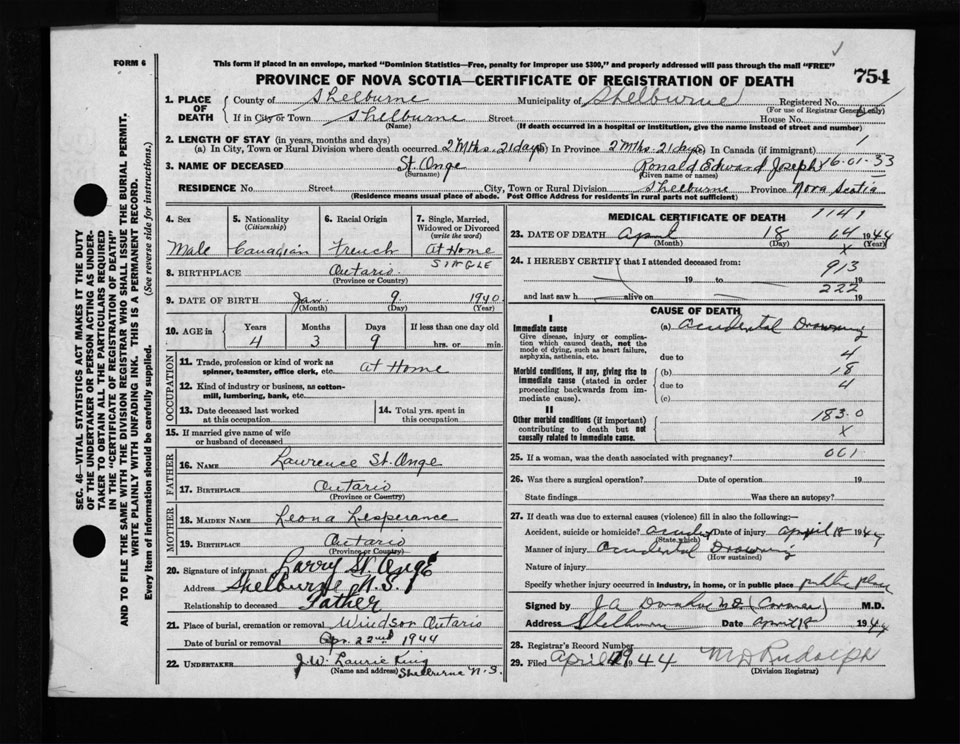 FORM 6
This form if placed in an envelope, marked "Dominion Statistics—Free, penalty for improper use $300," and properly addressed will pass through the mail "FREE"
PROVINCE OF NOVA SCOTIA—CERTIFICATE OF REGISTRATION OF DEATH
754
1. PLACE OF DEATH
County of Shelburne Municipality of Shelburne Registered No.
(For use of Registrar General only)
If in City or Town Shelburne Street House No.
(Name) (If death occurred in a hospital or institution, give the name instead of street and number)
2. LENGTH OF STAY (in years, months and days)
(a) In City, Town or Rural Division where death occurred 2 Mths. 21 days In Province 2 Mths. 21 days In Canada (if immigrant)
3. NAME OF DECEASED St. Onge Ronald Edward Joseph 16-01-33
(Surname) (Given name or names)
RESIDENCE No. Street City, Town or Rural Division Shelburne Province Nova Scotia
(Residence means usual place of abode. Post Office Address for residents in rural parts not sufficient)
4. Sex Male
5. Nationality (Citizenship) Canadian
6. Racial Origin French
7. Single, Married, Widowed or Divorced (write the word) At Home SINGLE
8. BIRTHPLACE Ontario
(Province or Country)
9. DATE OF BIRTH Jan. 9 1940
(Month) (Day) (Year)
10. AGE in Years Months Days If less than one day old
4 3 9 hrs. or min.
OCCUPATION
11. Trade, profession or kind of work as spinner, teamster, office clerk, etc. At Home
12. Kind of industry or business, as cotton-mill, lumbering, bank, etc.
13. Date deceased last worked at this occupation
14. Total yrs. spent in this occupation
15. If married give name of wife or husband of deceased
FATHER
16. NAME Lawrence St. Onge
17. BIRTHPLACE Ontario
(Province or Country)
MOTHER
18. MAIDEN NAME Leona Lesperance
19. BIRTHPLACE Ontario
(Province or Country)
20. Signature of informant Larry St. Onge
Address Shelburne N.S.
Relationship to deceased Father
21. Place of burial, cremation or removal Windsor Ontario
Date of burial or removal Apr. 22nd 1944
22. UNDERTAKER J.W. Laurie King
(Name and address) Shelburne N.S.
MEDICAL CERTIFICATE OF DEATH 1141
23. DATE OF DEATH April 18 1944
(Month) (Day) (Year)
04
X
24. I HEREBY CERTIFY that I attended deceased from:
913
19 to 19
222
and last saw h alive on 19
CAUSE OF DEATH
I
Immediate cause
Give disease, injury or complication which caused death, not the mode of dying, such as heart failure, asphyxia, asthenia, etc.
(a) Accidental Drowning
4
due to
Morbid conditions, if any, giving rise to immediate cause (stated in order proceeding backwards from immediate cause).
(b) 18
due to 4
(c)
II
Other morbid conditions (if important) contributing to death but not causally related to immediate cause.
183.0
X
25. If a woman, was the death associated with pregnancy? 001
26. Was there a surgical operation? Date of operation 19
State findings Was there an autopsy?
27. If death was due to external causes (violence) fill in also the following:—
Accident, suicide or homicide? Accident Date of injury April 18 1944
(State which)
Manner of injury Accidental Drowning
(How sustained)
Nature of injury
Specify whether injury occurred in industry, in home, or in public place public place
Signed by J A M.D. (Coroner) M.D.
Address Shelburne Date April 18 1944
28. Registrar's Record Number
29. Filed April 1944 M D Rudolph
(Division Registrar)
SEC. 46—VITAL STATISTICS ACT MAKES IT THE DUTY
OF THE UNDERTAKER OR PERSON ACTING AS UNDER-
TAKER TO OBTAIN ALL THE PARTICULARS REQUIRED
IN THE "CERTIFICATE OF REGISTRATION OF DEATH"
AND TO FILE THE SAME WITH THE DIVISION REGISTRAR WHO SHALL ISSUE THE BURIAL PERMIT.
WRITE PLAINLY WITH UNFADING INK. THIS IS A PERMANENT RECORD.
Every item of information should be carefully supplied. (See reverse side for instructions.)